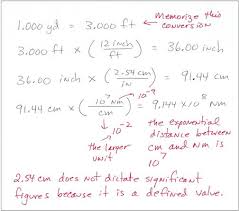 1.000 yd = 3.000 ft ← Memorize this conversion
3.000 ft × (12 inch / ft) = 36.00 inch
36.00 inch × (2.54 cm / in) = 91.44 cm
10⁻⁹
91.44 cm × (10⁷ nm / cm) = 9.144 × 10⁸ nm
10⁻²
the larger unit
the exponential distance between cm and nm is 10⁷
2.54 cm does not dictate significant
figures because it is a defined value.